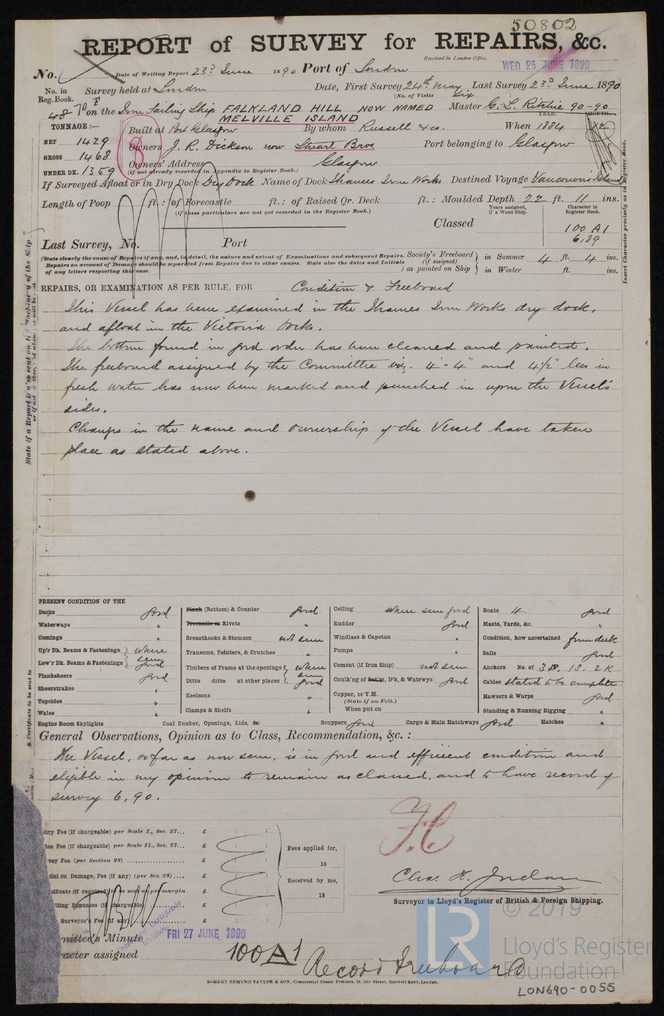 50802
REPORT of SURVEY for REPAIRS, &c.
Received in London Office,
WED 25 JUNE 1890
No. Date of Writing Report 23rd June 1890 Port of London
No. in Reg. Book. Survey held at London Date, First Survey 24th May Last Survey 23rd June 1890
(No. of Visits Six
48 on the Iron Sailing Ship FALKLAND HILL NOW NAMED Master G. L. Ritchie 90-90
MELVILLE ISLAND
YEAR. MONTH.
TONNAGE:—
Built at Port Glasgow By whom Russell & Co. When 1884
NET 1429
GROSS 1468
UNDER DK. 1359
Owners J. R. Dickson now Stuart Bros Port belonging to Glasgow
Owners' Address Glasgow
(if not already recorded in Appendix to Register Book.)
If Surveyed Afloat or in Dry Dock Dry Dock Name of Dock Thames Iron Works Destined Voyage Vancouver Island
Length of Poop ft.: of Forecastle ft.: of Raised Qr. Deck ft.: Moulded Depth 22 ft. 11 ins.
(if these particulars are not yet recorded in the Register Book.)
Years assigned, if a Wood Ship. Character in Register Book.
Classed 100 A1
6,89
Last Survey, No. Port
(State clearly the cause of Repairs if any, and, in detail, the nature and extent of Examinations and subsequent Repairs.
Repairs on account of Damage should be separated from Repairs due to other causes. State also the dates and Initials
of any letters respecting this case.
Society's Freeboard (if assigned) as painted on Ship
in Summer 4 ft. 4 ins.
in Winter ft. ins.
Insert Character precisely as in Register Book.
REPAIRS, OR EXAMINATION AS PER RULE, FOR Condition & Freeboard
This Vessel has been examined in the Thames Iron Works dry dock,
and afloat in the Victoria Docks.
The bottom found in good order has been cleaned and painted.
The freeboard assigned by the Committee viz. 4'-4" and 4½" less in
fresh water has now been marked and punched in upon the Vessel's
sides.
Changes in the name and ownership of the Vessel have taken
place as stated above.
PRESENT CONDITION OF THE
Decks good
Waterways "
Comings "
Up'r Dk. Beams & Fastenings where
Low'r Dk. Beams & Fastenings seen good
Planksheers good
Sheerstrakes "
Topsides "
Wales "
Engine Room Skylights
Plank (Bottom) & Counter good
Treenails or Rivets "
Breasthooks & Stemson not seen
Transoms, Pointers, & Crutches "
Timbers of Frame at the openings where
Ditto ditto at other places seen good
Keelsons "
Clamps & Shelfs "
Coal Bunker, Openings, Lids, &c
Ceiling where seen good
Rudder good
Windlass & Capstan "
Pumps "
Cement (if Iron Ship) not seen
Caulk'ng of Bott'm, D'k, & Waterwys good
Copper, or Y.M.
(State if on Felt.)
When put on
Scuppers good Cargo & Main Hatchways good Hatches "
Boats 4 good
Masts, Yards, &c. "
Condition, how ascertained from deck
Sails good
Anchors No. of 3B. 1S. 2K
Cables stated to be complete
Hawsers & Warps good
Standing & Running Rigging "
General Observations, Opinion as to Class, Recommendation, &c.:
The Vessel, so far as now seen, is in good and efficient condition and
eligible in my opinion to remain as classed, and to have record of
survey 6,90.
Fee (if chargeable) per Scale I., Sec. 27... £
Fee (if chargeable) per Scale II., Sec. 27... £
Fee (per Section 28) £
on Damage, Fee (if any) (per Sec. 28) £
Fees applied for,
18
Received by me,
18
Chas. H. Jordan
Surveyor to Lloyd's Register of British & Foreign Shipping.
Minute FRI 27 JUNE 1890
assigned 100A1
Record Freeboard
ROBERT EDMUND TAYLOR & SON,
© 2019
LR
Lloyd's Register
Foundation
LON690-0055